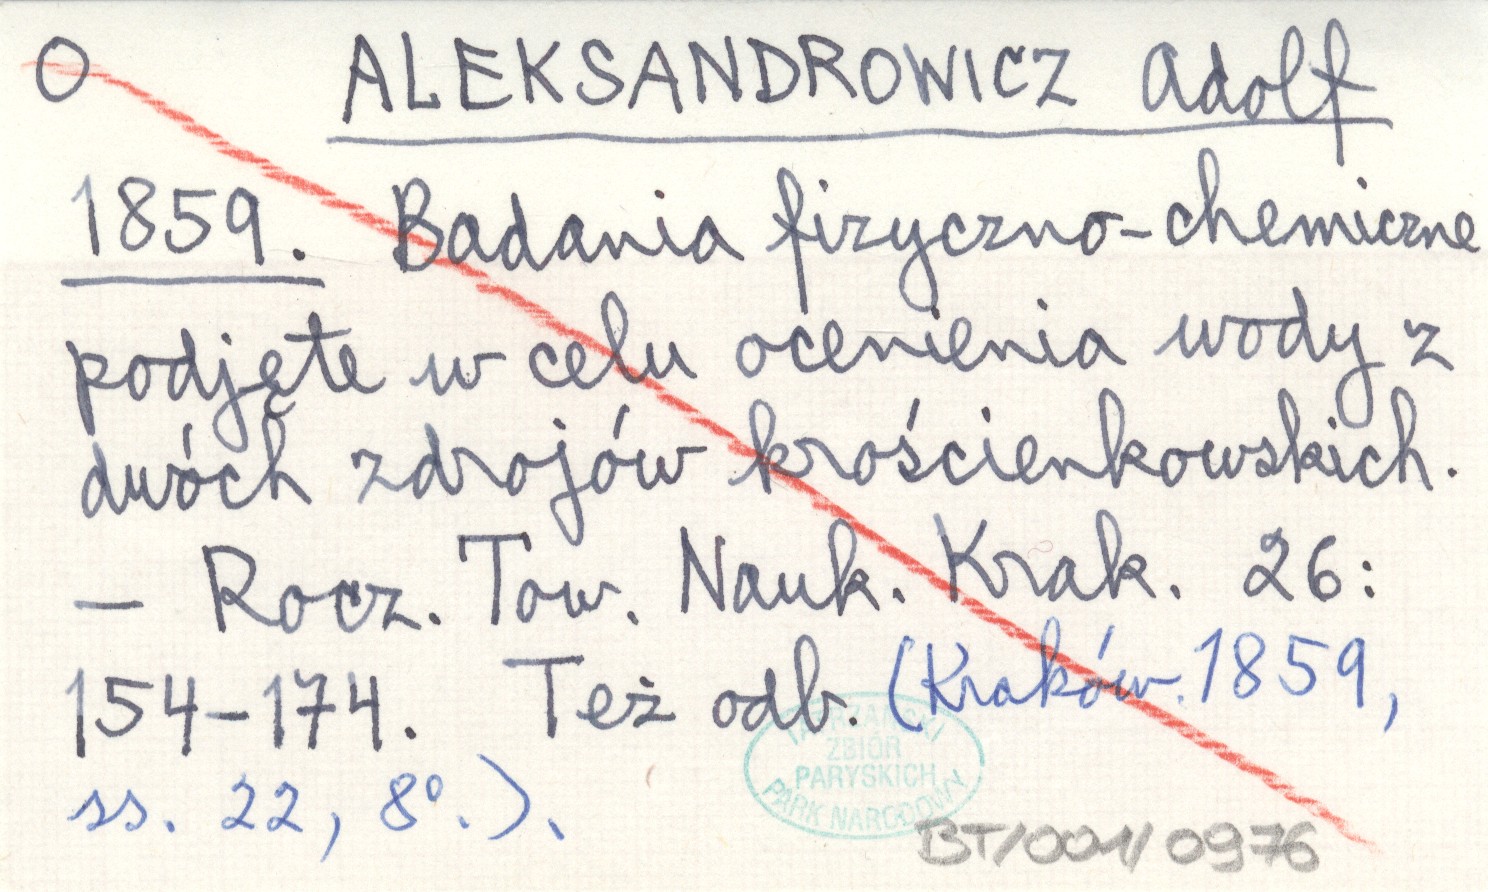 O ALEKSANDROWICZ Adolf
1859. Badania fizyczno-chemiczne
podjęte w celu ocenienia wody z
dwóch zdrojów krościenkowskich.
— Rocz. Tow. Nauk. Krak. 26:
154-174. Też odb. (Kraków. 1859,
ss. 22, 8°.).
TATRZAŃSKI
ZBIÓR
PARYSKICH
PARK NARODOWY
BT/001/0976